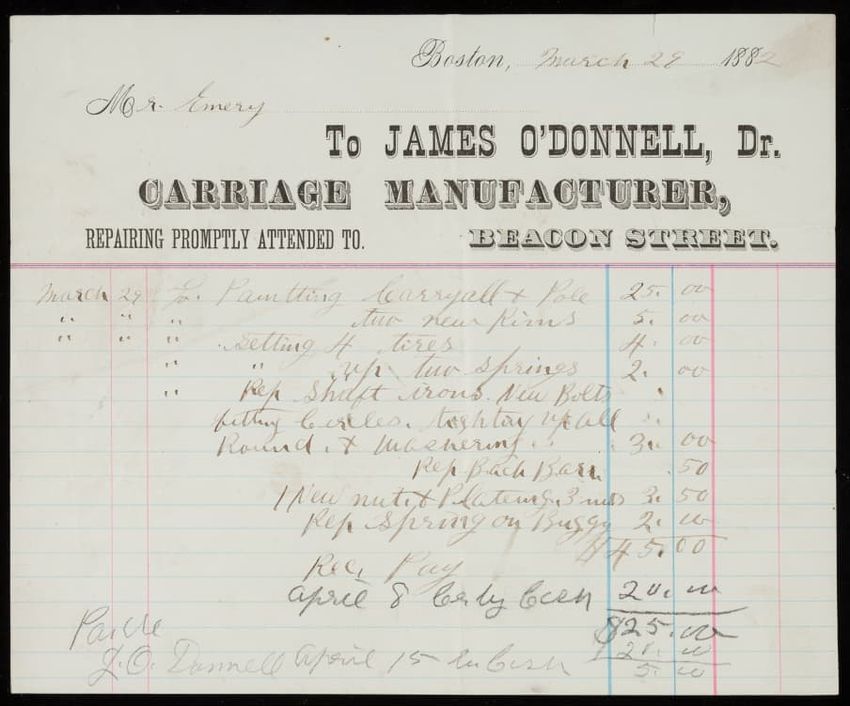 Boston, March 29 1882
Mr. Emery
To JAMES O'DONNELL, Dr.
CARRIAGE MANUFACTURER,
REPAIRING PROMPTLY ATTENDED TO. BEACON STREET.
March 29 To Paintting Carryall & Pole 25. 00
" " " two new Rims 5. 00
" " " Setting 4 tires 4. 00
" " up two Springs 2. 00
" Rep Shaft irons. New Bolts
fitting Circles. up all
Round. & Washering. 3. 00
Rep Back Barr. .50
1 New nut & Plateing. 3 nuts 3. 50
Rep Spring on Buggy 2. 00
$45.00
Rec, Pay
April 8 by Cash 20. 00
$25. 00
J. O. Donnell April 15 Cash 20. 00
5. 00